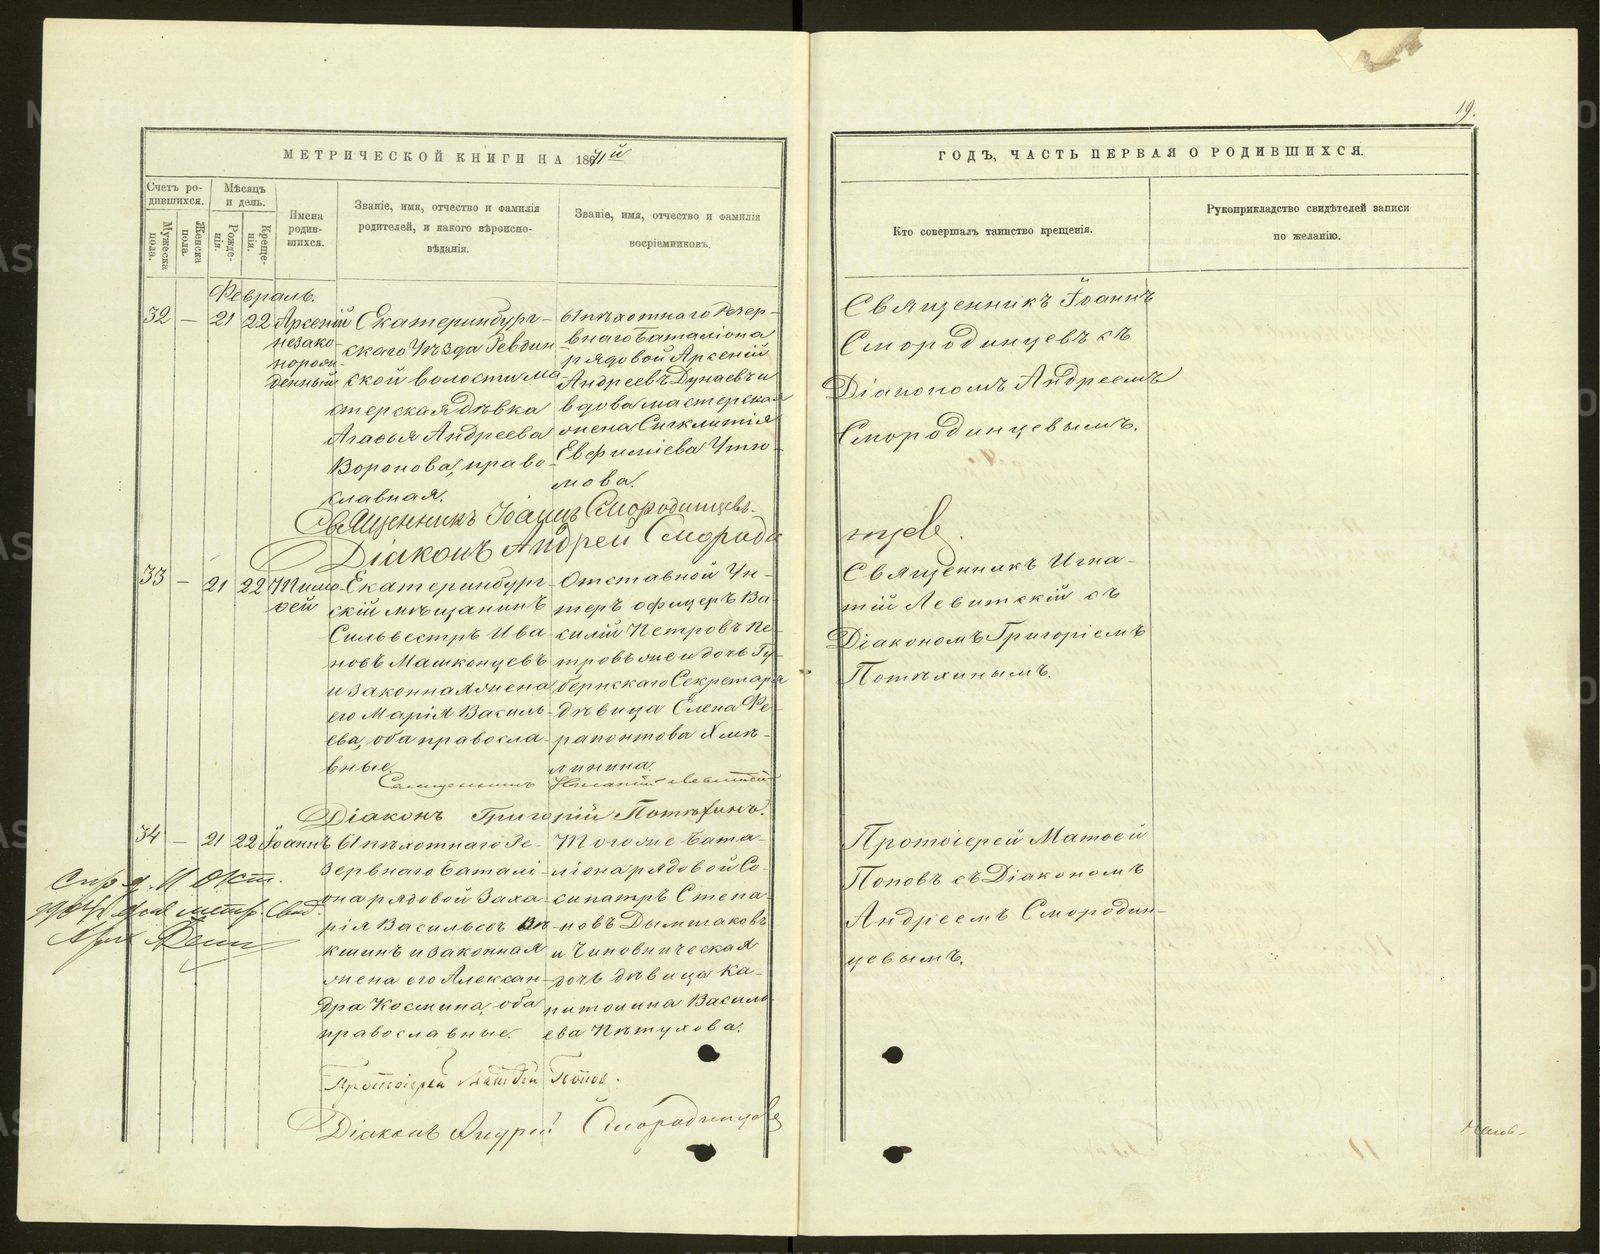 19.
МЕТРИЧЕСКОЙ КНИГИ НА 1871й
ГОДЪ, ЧАСТЬ ПЕРВАЯ О РОДИВШИХСЯ.
Счетъ ро-
дившихся.
Мужеска
пола.
Женска
пола.
Мѣсяцъ
и день.
Рожде-
нія.
Креще-
нія.
Имена
родив-
шихся.
Званіе, имя, отчество и фамилія
родителей, и какого вѣроиспо-
вѣданія.
Званіе, имя, отчество и фамилія
воспріемниковъ.
Кто совершалъ таинство крещенія.
Рукоприкладство свидѣтелей записи
по желанію.
Февраль.
32 — 21 22
Арсеній
незако-
норож-
денный
Екатеринбург-
скаго Уѣзда Ревдин
ской волости ма-
стерская дѣвка
Агаѳья Андреева
Воронова, право-
славная.
61 пѣхотнаго Резер-
внаго Баталіона
рядовой Арсеній
Андреевъ Дунаевъ и
вдова мастерска-
жена Синклитія
Евфиміева Утю-
мова.
Священникъ Іоаннъ
Смородинцевъ съ
Діакономъ Андреемъ
Смородинцевымъ.
Священникъ Іоаннъ Смородинцевъ.
Діаконъ Андрей Смороди
нцев.
33 — 21 22
Тимо
ѳей
Екатеринбург-
скій мѣщанинъ
Сильвестръ Ива
новъ Машконцевъ
и законная жена
его Марія Василь-
ева, оба правосла-
вные.
Отставной Ун-
теръ офицеръ Ва-
силій Петровъ Пе-
тровъ же и дочь Гу-
бернскаго Секретаря
дѣвица Елена Фе-
рапонтова Хмѣ-
линина.
Священникъ Игна-
тій Левитскій съ
Діакономъ Григоріемъ
Потѣхинымъ.
Священникъ Игнатій Левитскій
Діаконъ Григорій Потѣхинъ.
34 — 21 22
Іоаннъ
61 пѣхотнаго Ре-
зервнаго Баталі-
она рядовой Заха-
рія Васильевъ
кшинъ и законная
жена его Алексан-
дра Космина, оба
православные.
Того же Бата-
ліона рядовой Со-
сипатръ Степа-
новъ Дымшаковъ
и Чиновническая
дочь дѣвица Ка-
питолина Василь
ева Пѣтухова.
Протоіерей Матѳей
Поповъ съ Діакономъ
Андреемъ Смородин-
цевымъ.
Протоіерей Матѳей Попов.
Діаконъ Андрей Смородинцевъ
METRIKI.GASO-URAL.RU